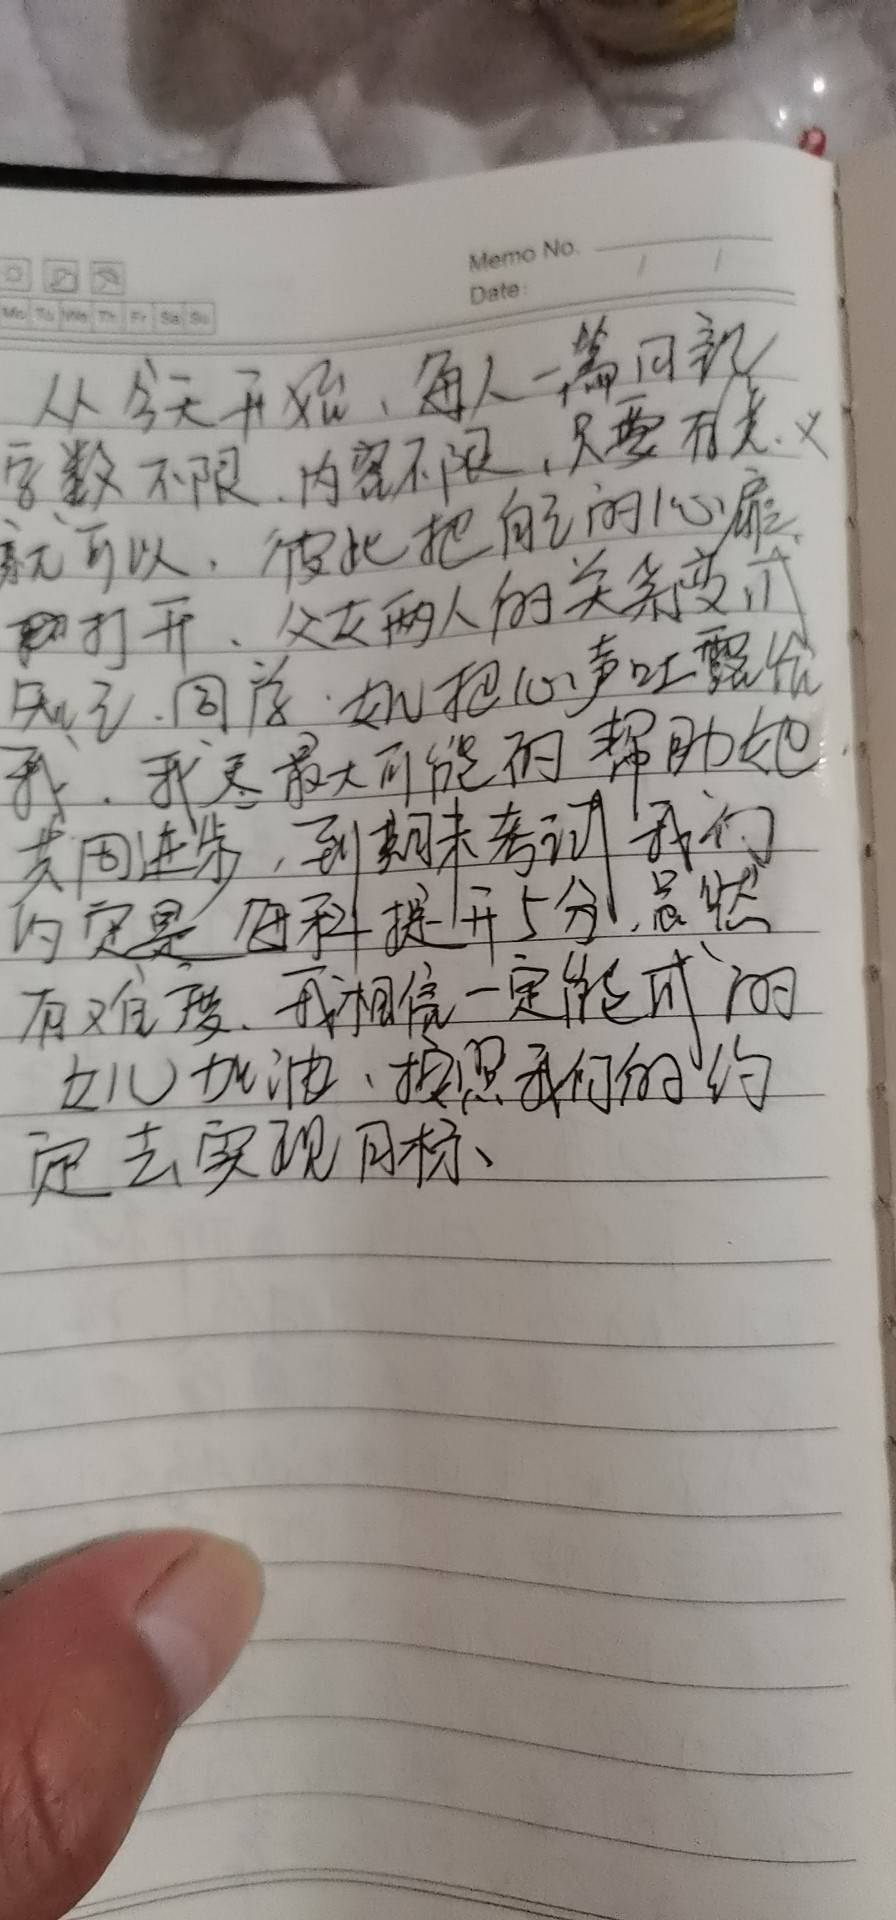 Memo No.
Date:
Mo Tu We Th Fr Sa Su
从今天开始、每人一篇日记
字数不限、内容不限，只要有意义
就可以、彼此把自己的心扉
打开、父女两人的关系变成
知己、同学、女儿把心声吐露给
我、我尽最大可能的帮助她
共同进步，到期末考试我们
约定是每科提升5分，虽然
有难度、我相信一定能成的
女儿加油、按照我们的约
定去实现目标、